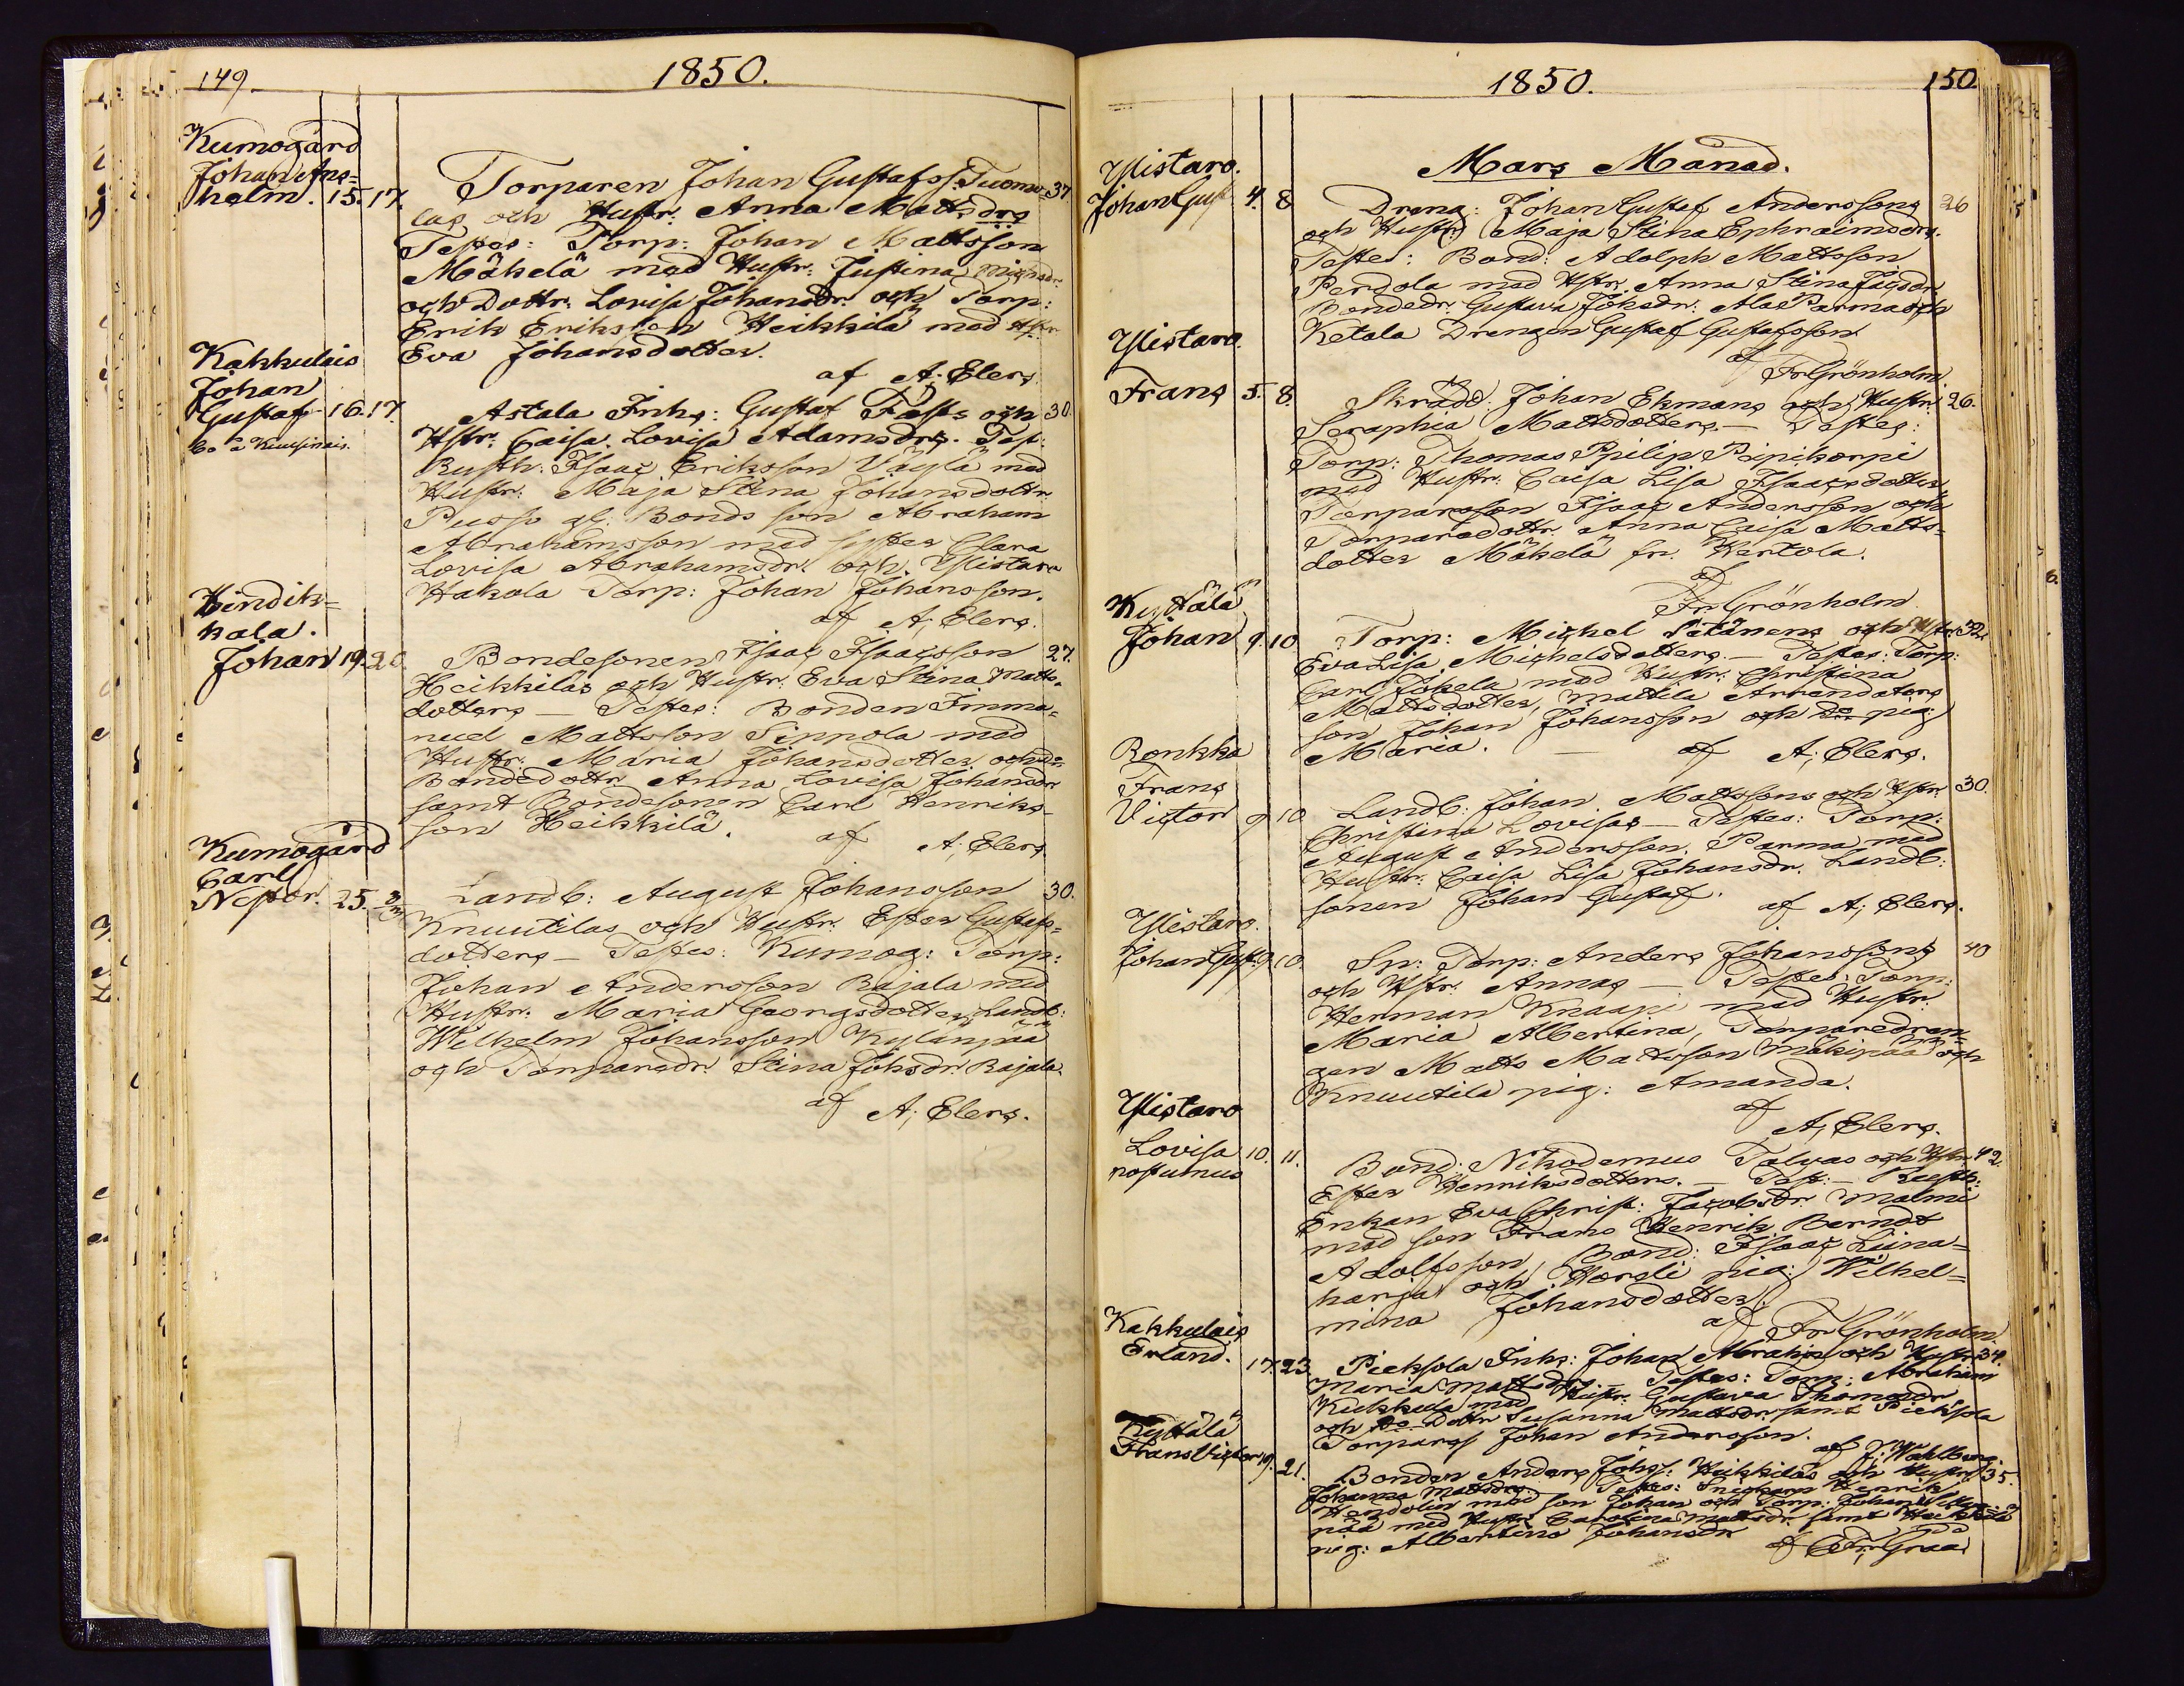 149. 1850.
Kumogård
Johan Ans=
helm. 15. 17.
Torparen Johan Gustafss: Tuomo 37
las och Hustr. Anna Mattsdrs
Testes: Torp: Johan Mattsson
Mäkelä med Hustr: Justina
och Dottr. Lovisa Johansdr. och Torp:
Erik Eriksson Heikkilä med Hstr.
Eva Johansdotter.
af A; Elers
Kakkulais
Johan
Gustaf 16. 17.
Astala Inhs: Gustaf Fasts och 30.
Hstr: Caisa Lovisa Adamsdrs. Test:
Rusth: Isaac Eriksson Väylä med
Hustr: Maja Stina Johansdottr
Pusso gl. Bonds son Abraham
Abrahamsson med syster Clara
Lovisa Abrahamsdr. och Ylistaro
Hakola Torp: Johan Johansson.
af A; Elers.
Hindiks=
kala.
Johan 19. 20.
Bondesonen Isaac Isaacsson 27.
Heikkilas och Hustr: Eva Stina Matts=
dotters — Testes: Bonden Imma=
nuel Mattsson Sippola med
Hustr: Maria Johansdotter och
Bondedottr Anna Lovisa Johansdr
samt Bondesonen Carl Henriks=
son Heikkilä.
af A; Elers
Kumogård
Carl
Nestor. 25. 3/3
Landb: August Johansson 30.
Knuutilas och Hustr. Ester Gustafs=
dotters — Testes: Kumog: Torp:
Johan Andersson Rajala med
Hustr: Maria Georgsdotter, Landb:
Wilhelm Johansson Kylänpää
och Torparedr. Stina Johsdr. Rajala.
af A; Elers.
1850. 150.
Mars Månad.
Ylistaro.
Johan Gust 4. 8
Dreng: Johan Gustaf Anderssons 26
och Hustr: Maja Stina Ephraimsdrs.
Testes: Bond: Adolph Mattsson
Perdola med Hstr. Anna Stina
Bondedr. Gustava Johsdr. Ala Parma och
Ketala Drengen Gustaf Gustafsson
af Fr Grönholm
Ylistaro.
Frans 5. 8.
Skrädd: Johan Ekmans och Hustr: 26.
Seraphia Mattsdotters — Testes:
Torp: Thomas Philip Pipikorpi
med Hustr. Caisa Lisa Isaacsdotter
Torpareson Isaac Andersson och
Torparedottr. Anna Caisa Matts=
dotter Mäkelä fr. Hertola.
af
Fr Grönholm
Kyttälä
Johan 9. 10
Torp: Michel Sätänens och Hstr 32.
Eva Lisa Michelsdotters. — Testes: Torp:
Carl Jokela med Hustr. Christina
Mattsdotter, Mattila Arrendators
son Johan Johansson och do pig:
Maria. — af A; Elers.
Ronkka
Frans
Victor 9 10
Landb: Johan Mattssons och Hstr. 30.
Christina Lovisas — Testes: Torp:
August Andersson Parma med
Hustr: Caisa Lisa Johansdr. Landb:
sonen Johan Gustaf.
af A; Elers.
Ylistaro.
Johan Gust. 9 10.
Sp: Torp: Anders Johanssons 40
och Hstr. Annas — Testes: Torp:
Herman Knaapi med Hustr.
Maria Albertina, Torparedren=
gen Matts Mattsson Mäkipää och
Knuutila pig: Amanda.
af
A; Elers.
Ylistaro
Lovisa 10. 11.
postumus
Bond: Nikodemus Talvas och Hstr. 42
Ester Henriksdotters. — Test: — Rusth:
Enkan Eva Christ: Jacobsdr. Malmi
med son Frans Henrik Berndt
Adolfsson, Bond: Isaac Liina=
harja och Horeli pig: Wilhel=
mina Johansdotter
af Fr Grönholm.
Kakkulais
Erland. 17. 23.
Pieksola Inhs: Johan Abrahs och Hustr 34.
Maria Mattsdrs — Testes: Torp: Abraham
Kukkula med Hustr. Gustava Thomasdr
och do dottr Susanna Mattsdr. samt Pieksola
Torpares Johan Andersson.
af J; Wahlberg.
Kyttälä
Frans Victor 19. 21.
Bonden Anders Johss: Heikkilas och Hustr 35.
Johanna Mattsdrs. Testes: Henrik
Hendolin med son Johan och Torp: Johan
pää med Hustr Carolina Mattsdr. samt
pig: Albertina Johansdr